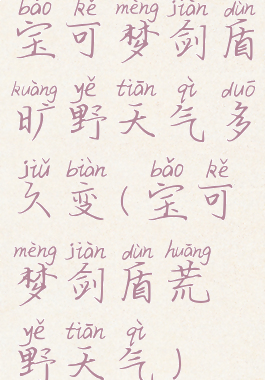 bǎo kě mèng jiàn dùn
宝可梦剑盾
kuàng yě tiān qì duō
旷野天气多
jiǔ biàn bǎo kě
久变(宝可
mèng jiàn dùn huāng
梦剑盾荒
yě tiān qì
野天气)